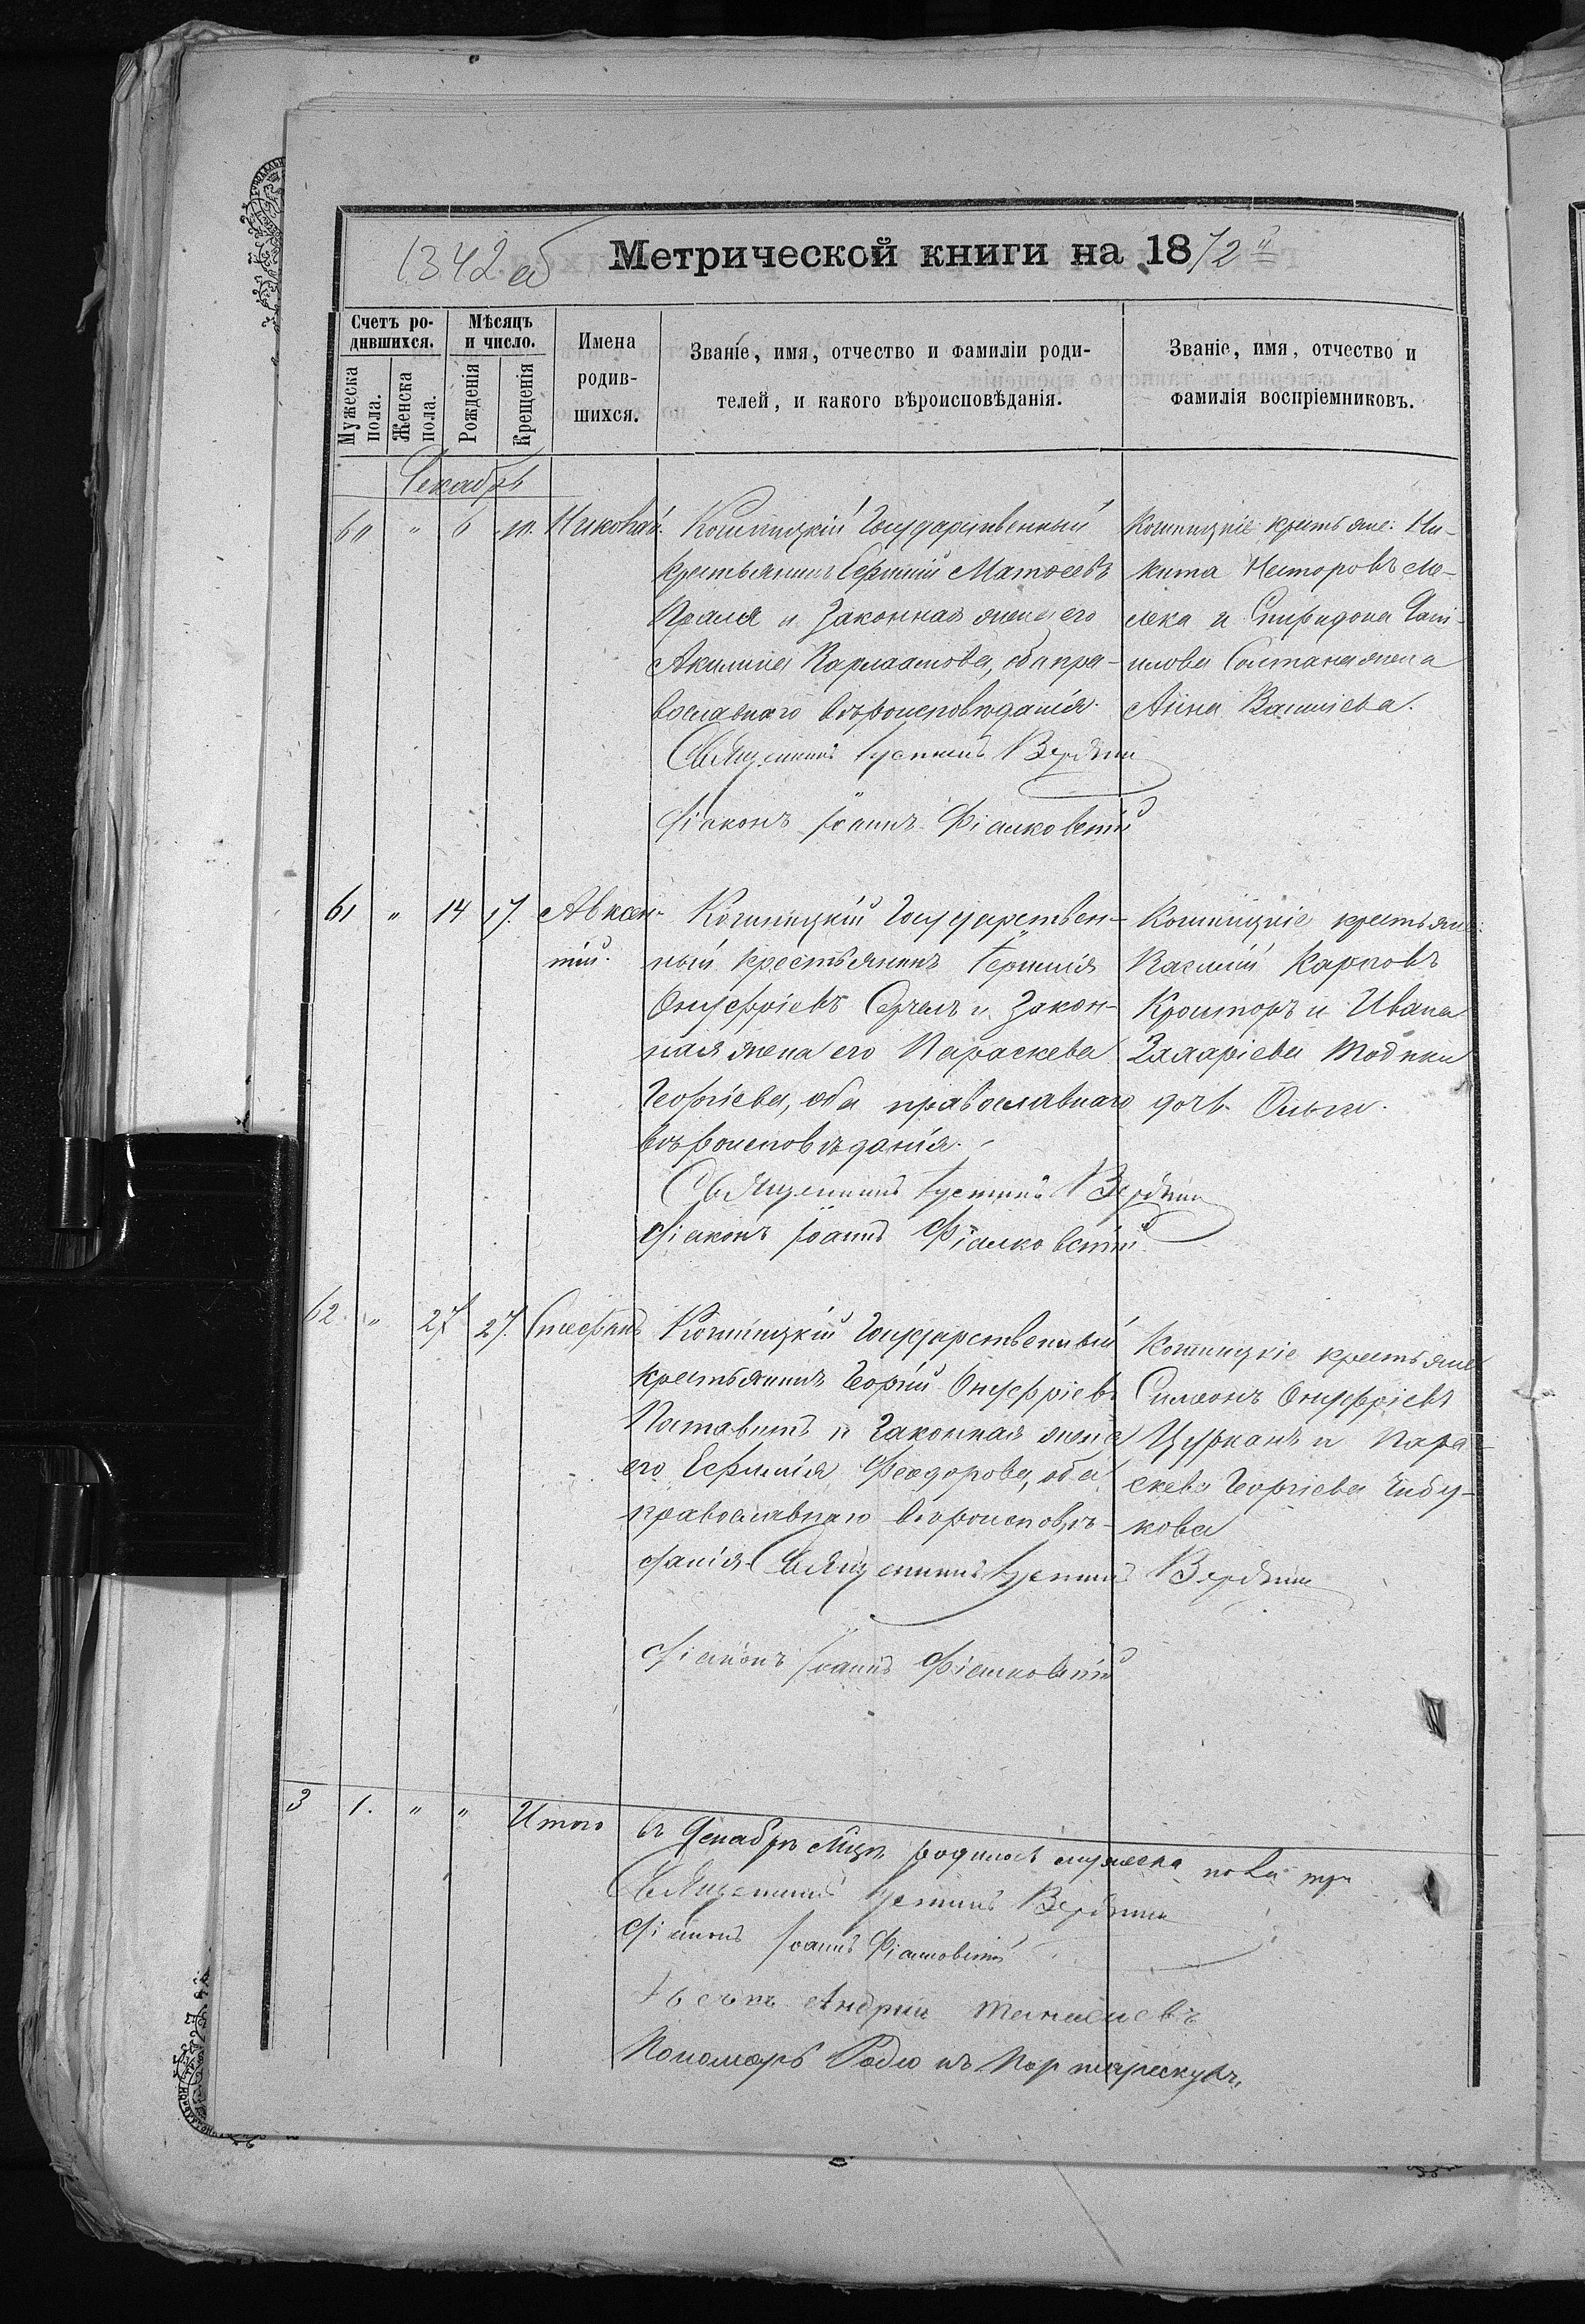 1342 об
Метрической книги на 1872й
Счетъ ро-
дившихся.
Мѣсяцъ
и число.
Мужеска
пола.
Женска
пола.
Рожденія
Крещенія
Имена
родив-
шихся.
Званіе, имя, отчество и фамиліи роди-
телей, и какого вѣроисповѣданія.
Званіе, имя, отчество и
фамилія воспріемниковъ.
Декабрь
60 " 6 10. Николай.
Кошницкій Государственный
крестьянинъ Матѳеевъ
и законная жена его
Акилина Варлаамова, оба пра-
вославнаго вѣроисповѣданія.
Священникъ
Діаконъ Іоаннъ Фіалковскій
Кошницкіе крестьяне: Ни-
кита Несторовъ Ме-
лека и Спиридона
жена
Анна Василіева.
61 " 14 17. Авксен-
тій.
Кошницкій Государствен-
ный крестьянинъ
Онуфріевъ и закон-
ная жена его Параскева
Георгіева, оба православнаго
вѣроисповѣданія.
Священникъ
Діаконъ Іоаннъ Фіалковскій
Кошницкіе крестьяне:
Василій Карповъ
Кроиторъ и Ивана
Захаріева
дочь Ольга.
62. " 27 27. Стефанъ
Кошницкій Государственный
крестьянинъ Георгій Онуфріевъ
и законная жена
его Евфимія Феодорова, оба
православнаго вѣроисповѣ-
данія. Священникъ
Діаконъ Іоаннъ Фіалковскій
Кошницкіе крестьяне
Симеонъ Онуфріевъ
Цурканъ и Пара-
скева Георгіева Чибу-
кова
3 1. " " Итого въ Декабрѣ мцѣ родилось мужеска пола три
Священникъ
Діаконъ Іоаннъ Фіалковскій
Андрей
Пономарь